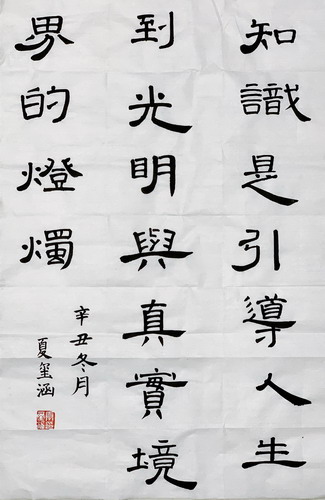 知識是引導人生
到光明與真實境
界的燈燭
辛丑冬月
夏玺涵